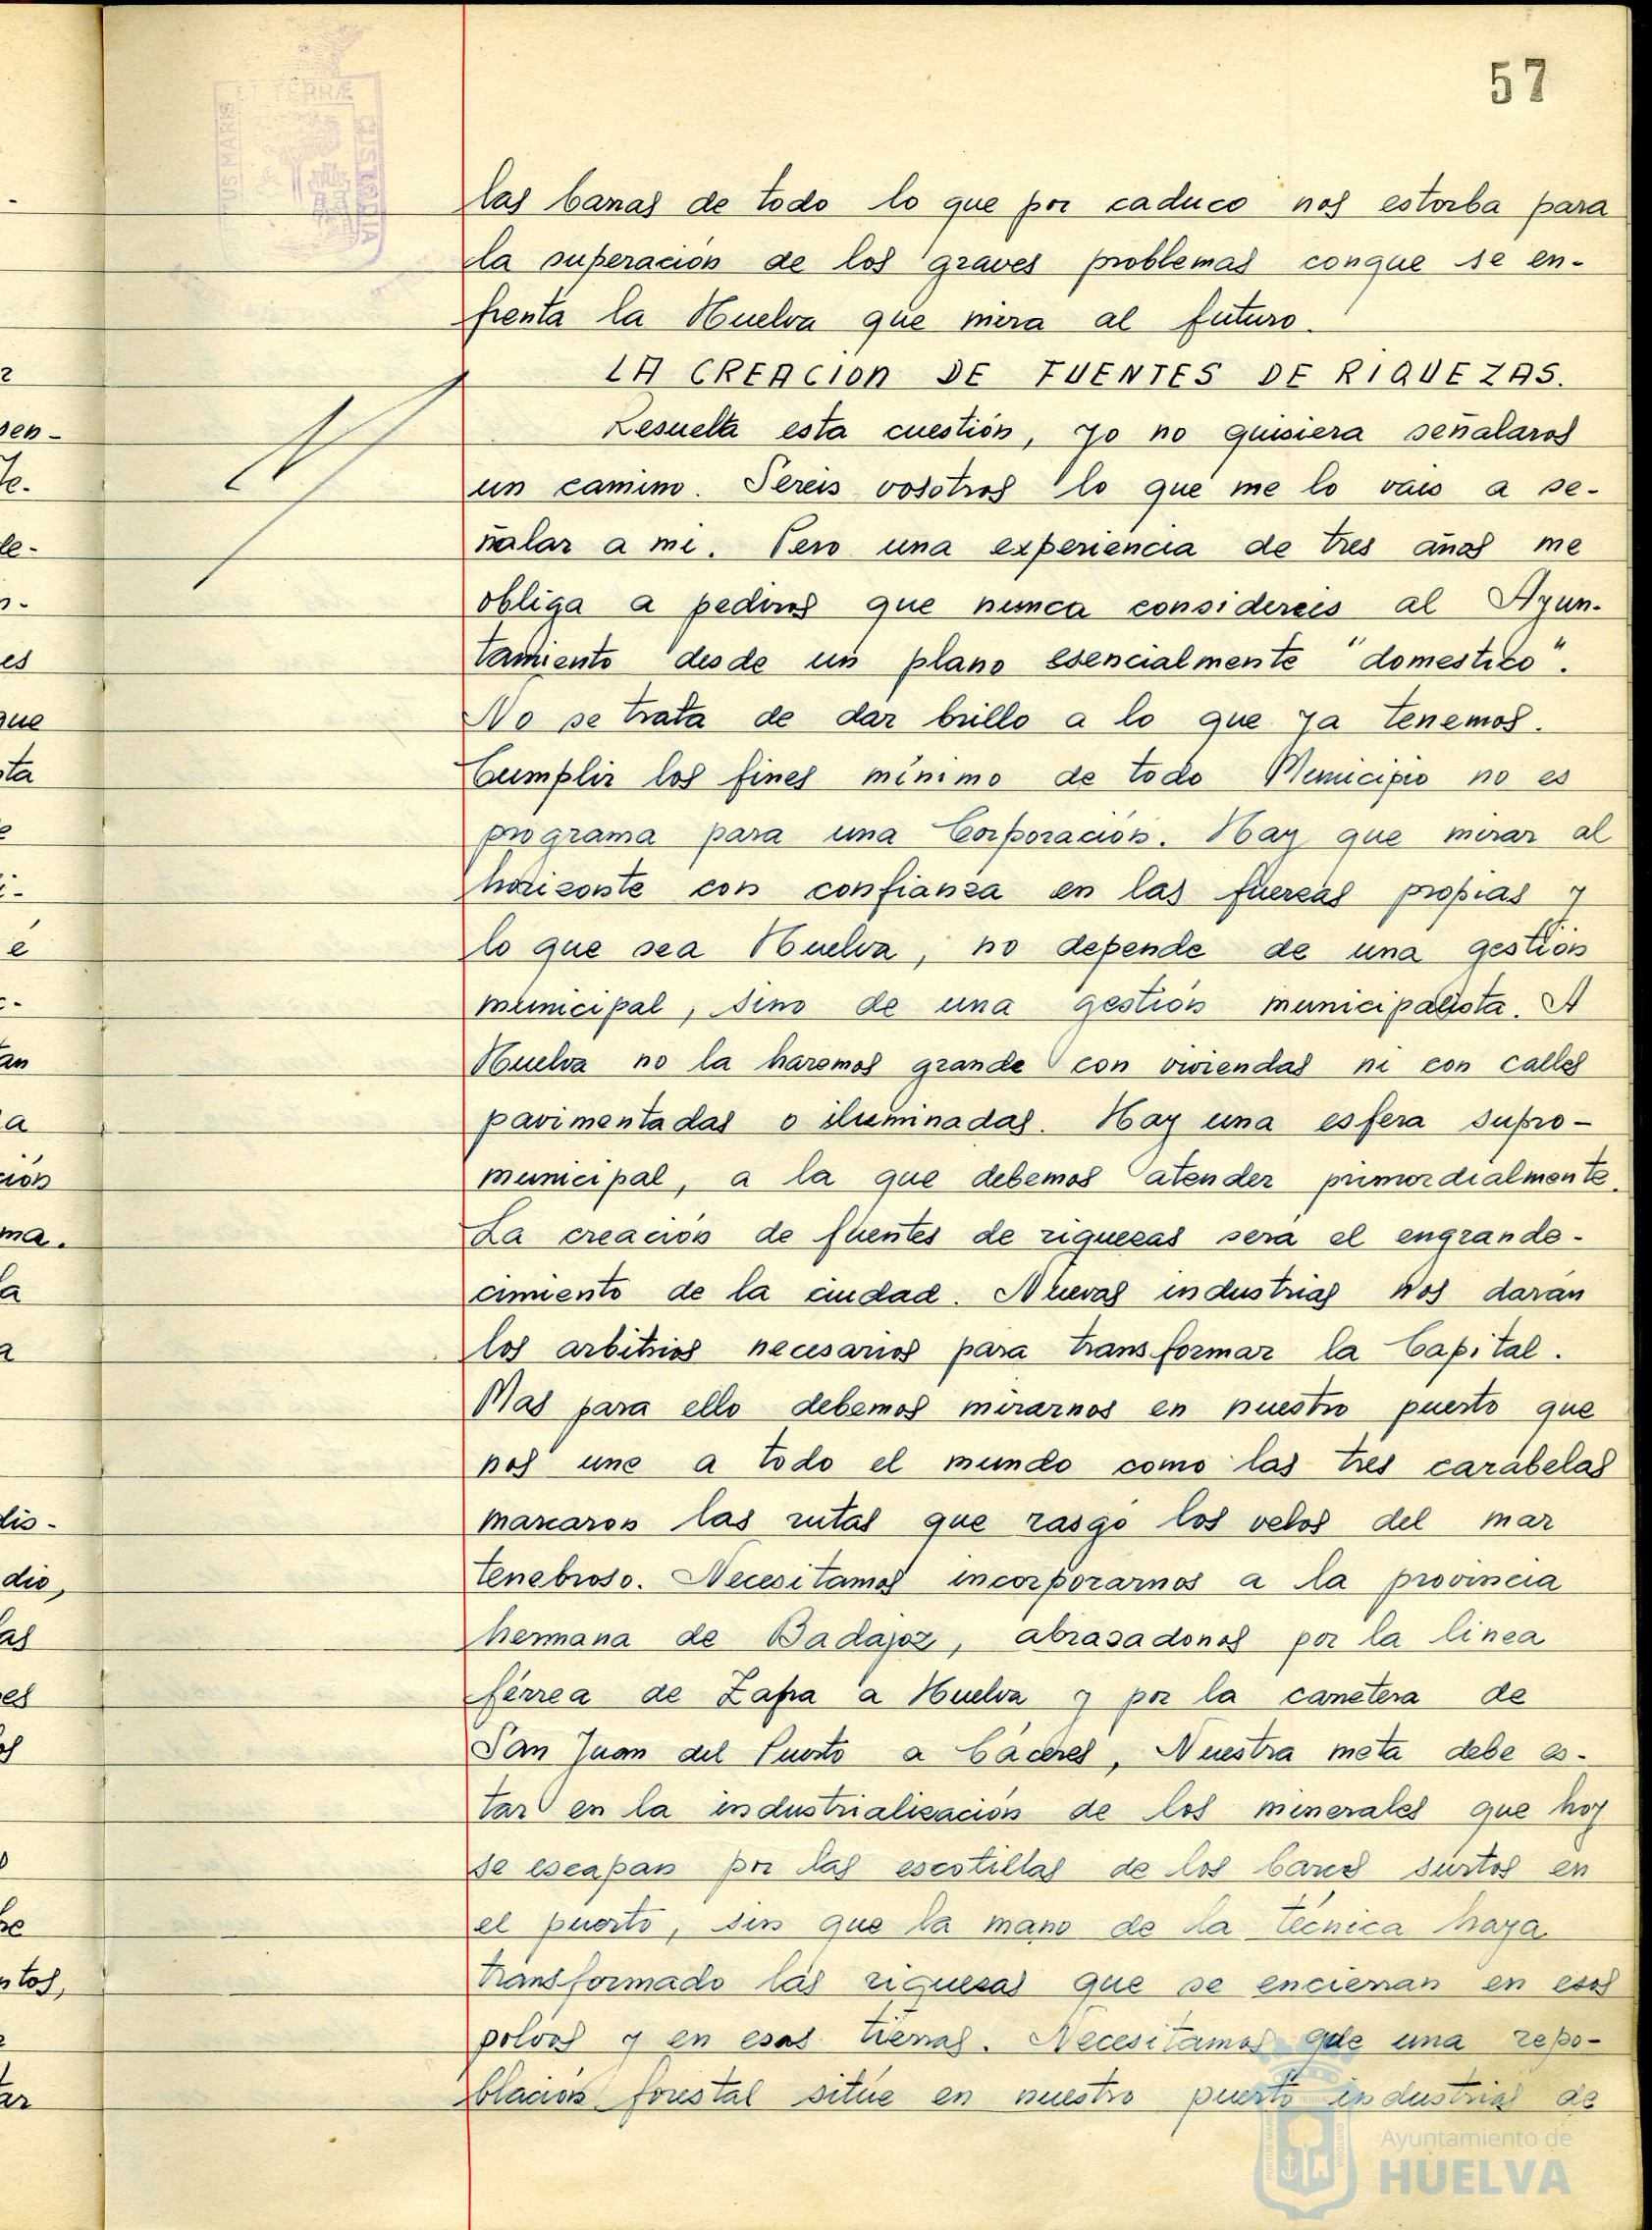 57
las barras de todo lo que por caduco nos estorba para
la superación de los graves problemas conque se en-
frenta la Huelva que mira al futuro.
LA CREACION DE FUENTES DE RIQUEZAS.
Resuelta esta cuestión, yo no quisiera señalaros
un camino. Sereis vosotros lo que me lo vais a se-
ñalar a mi. Pero una experiencia de tres años me
obliga a pediros que nunca considereis al Ayun-
tamiento desde un plano esencialmente "domestico".
No se trata de dar brillo a lo que ya tenemos.
Cumplir los fines mínimo de todo Municipio no es
programa para una Corporación. Hay que mirar al
horizonte con confianza en las fuerzas propias y
lo que sea Huelva, no depende de una gestión
municipal, sino de una gestión municipalista. A
Huelva no la haremos grande con viviendas ni con calles
pavimentadas o iluminadas. Hay una esfera supro-
municipal, a la que debemos atender primordialmente.
La creación de fuentes de riquezas será el engrande-
cimiento de la ciudad. Nuevas industrias nos darán
los arbitrios necesarios para transformar la Capital.
Mas para ello debemos mirarnos en nuestro puerto que
nos une a todo el mundo como las tres carabelas
marcaron las rutas que rasgó los velos del mar
tenebroso. Necesitamos incorporarnos a la provincia
hermana de Badajoz, abrazadonos por la linea
férrea de Zafra a Huelva y por la carretera de
San Juan del Puerto a Cáceres, Nuestra meta debe es-
tar en la industrialización de los minerales que hoy
se escapan por las escotillas de los barcos surtos en
el puerto, sin que la mano de la técnica haya
transformado las riquezas que se encierran en esos
polvos y en esas tierras. Necesitamos que una repo-
blación forestal sitúe en nuestro puerto industrias de
Ayuntamiento de
HUELVA